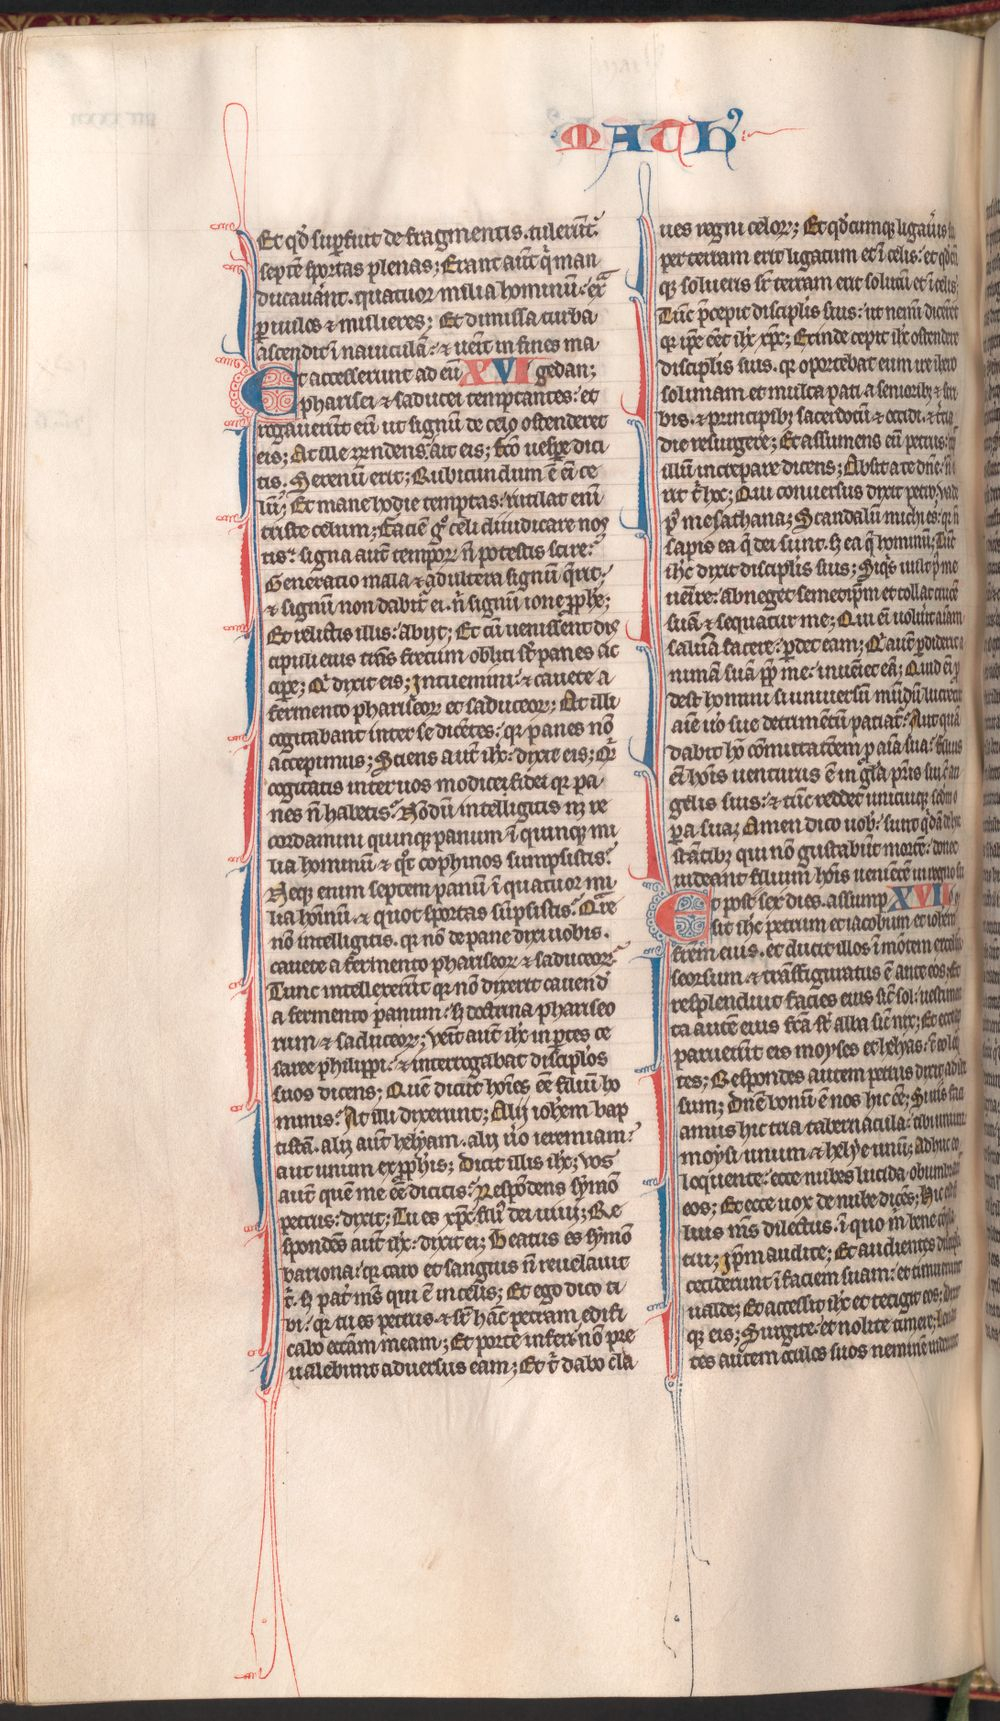 MATH'
Et qđ sup̄fuit de fragmentis. tulerūt
septē sportas plenas; Erant aut̄ q̄ man
ducauāt. quatuor milia hominū: ext̄
p̄uulos & mulieres; Et dimissa turba
ascendit ī nauiculā: & ueīt in fines ma
Et accesserunt ad eū XVI gedan;
pharisei & saducei temptantes: et
rogauerūt eū ut signū de celo ostenderet
eis; At ille rn̄dens. ait eis; fc̄o uesp̄e dici
tis. Serenū erit; Rubicundum ē em̄ ce
lū; Et mane hodie temptas: rutilat enī
triste celum; faciē g° celi diiudicare nos
tis: signa aut̄ tempoꝝ n̄ potestis scire:
Generatio mala & adultera signū q̄rit;
& signū non dabit̄ ei. n̄ signū ione ꝓph̄e;
Et relictis illis: abijt; Et cū uenissent dis
cipuli eius trās fretum obliti st̄ panes ac
cipe; Qͥ dixit eis; Intuemini: & cauete a
fermento phariseoꝝ et saduceoꝝ; At illi
cogitabant inter se dicētes: qꝛ panes nō
accepimus; Sciens aut̄ ih̄c: dixit eis; Qͥd
cogitatis inter uos modice fidei qꝛ pa
nes n̄ habetis? Nōdū intelligitis neqꝫ re
cordamini quinqꝫ panum ī quinqꝫ mi
lia hominū & qͦt cophinos sumpsistis?
Neqꝫ enim septem panū ī quatuor mi
lia hōinū. & quot sportas sūpsistis? Qͣre
nō intelligitis. qꝛ nō de pane dixi uobis.
cauete a fermento phariseoꝝ & saduceoꝝ?
Tunc intellexerūt qꝛ nō dixerit cauend̄
a fermento panum: sꝫ doctrina phariseo
rum & saduceoꝝ; Veīt aut̄ ih̄c in partes ce
saree philippi: & interrogabat disciplos
suos dicens; Quē dicūt hōies eē filiū ho
minis? At illi dixerunt; Alij ioh̄em bap
tistā. alij aut̄ helyam. alij u̇o ieremiam:
aut unum ex ꝓphis; Dicit illis ih̄c; Vos
aut̄ quē me eē dicitis? Respōdens symō
petrus: dixit; Tu es xp̄c filiꝰ dei uiui; Re
spondēs aut̄ ih̄c: dixit ei; Beatus es symō
bariona: qꝛ caro et sangius n̄ reuelauit
t̄. sꝫ pat̄ mꝰs qui ē in celis; Et ego dico ti
bi: qꝛ tu es petrus. & sr̄ hāc petram edifi
cabo ecc̄am meam; Et porte inferi nō pre
ualebunt aduersus eam; Et t̄ dabo cla
ues regni celoꝝ; Et qđcumqꝫ ligaūis
per terram erit ligatum et ī celis: et qđcū
qꝫ solueris sr̄ terram erit solutū et ī celis;
Tūc p̄cepit disciplis suis: ut nemī dicēret
qꝛ ip̄e eēt ih̄c xp̄c; Exinde cepit ih̄c ostendere
disciplis suis. qꝛ oportebat eum ire ih̄ero
solimam et multa pati a senioribꝫ & scri
bis. & principibꝫ sacerdotū & occidi. & t̄cia
die resurgere; Et assumens eū petrus:
illū increpare dicens; Absit a te dn̄e: n̄
erit t̄ hoc; Qui conuersus dixit petro; Vade
pꝰ me sathana; Scandalū michi es: qꝛ n̄
sapis ea q̄ dei sunt. sꝫ ea q̄ hominū; Tūc
ih̄c dixit disciplis suis; Siqͥs uult pꝰ me
uēire: abneget semetip̄m et tollat crucē
suā & sequatur me; Qui eī uoluit aīam
saluā facere: pdet eam; Qͥ aut̄ pdiderit a
nimam suā ꝓp̄ me: inueniet eā; Quid eī p
dest homini si uniuersū mūdū lucretur
aīe u̇o sue detrimētū patiat̄? Aut quā
dabit hō cōmutatōem p aīa sua? Filius
eī hōis uenturus ē in gla p̄ris sui cū an
gelis suis: & tūc reddet unicuiqꝫ scd̄m o
pa sua; Amen dico uob̄: sunt qͥdā de hic
stātibꝫ qui nō gustabūt mortē: donec
uideant filium hōis ueniētē in regno suo
Et post sex dies. assump XVII
sit ih̄c petrum et iacobum et ioh̄em
fr̄em eius. et ducit illos ī mōtem excelsū
seorsum. & trāsfiguratus ē ante eos; Et
resplenduit facies eius sīc sol: uestimen
ta autē eius fc̄a st̄ alba sīc nix; Et ecce ap
paruerūt eis moyses et helyas: cū eo loq̄n
tes; Respondēs autem petrus dixit ad ih̄e
sum; Dn̄e bonū ē nos hic eē; Si uis faci
amus hic tria tabernacula: tibi unum:
moysi unum & helye unū; Adhuc eo
loquente: ecce nubes lucida obumbrauit
eos; Et ecce uox de nube dicēs; Hic est fi
lius mꝰs dilectus. ī quo m̄ bene cōpla
cui; Ip̄m audite; Et audientes discipli
ceciderunt ī faciem suam: et timuerunt
ualde; Et accessit ih̄c et tetigit eos; Dixit
qꝫ eis; Surgite et nolite timere; Leuan
tes autem oculos suos neminē uiderunt